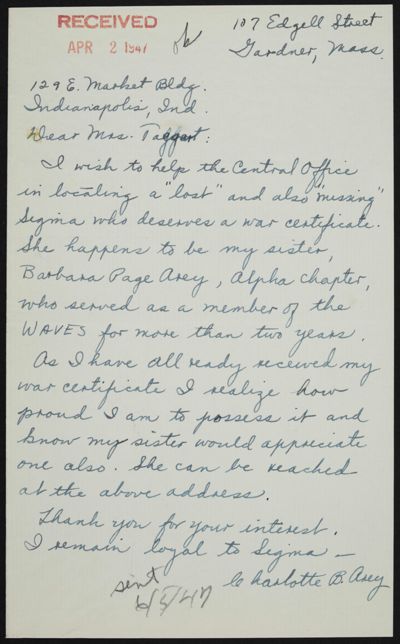 RECEIVED
APR 2 1947
ok
107 Edgell Street
Gardner, Mass.
129 E. Market Bldg.
Indianapolis, Ind.
Dear Mrs. Taggart:
I wish to help the Central Office
in locating a "lost" and also "missing"
Sigma who deserves a war certificate.
She happens to be my sister,
Barbara Page Arey, Alpha Chapter,
who served as a member of the
WAVES for more than two years.
As I have all ready received my
war certificate I realize how
proud I am to possess it and
know my sister would appreciate
one also. She can be reached
at the above address.
Thank you for your interest.
I remain loyal to Sigma —
Charlotte B. Arey
sent
6/5/47